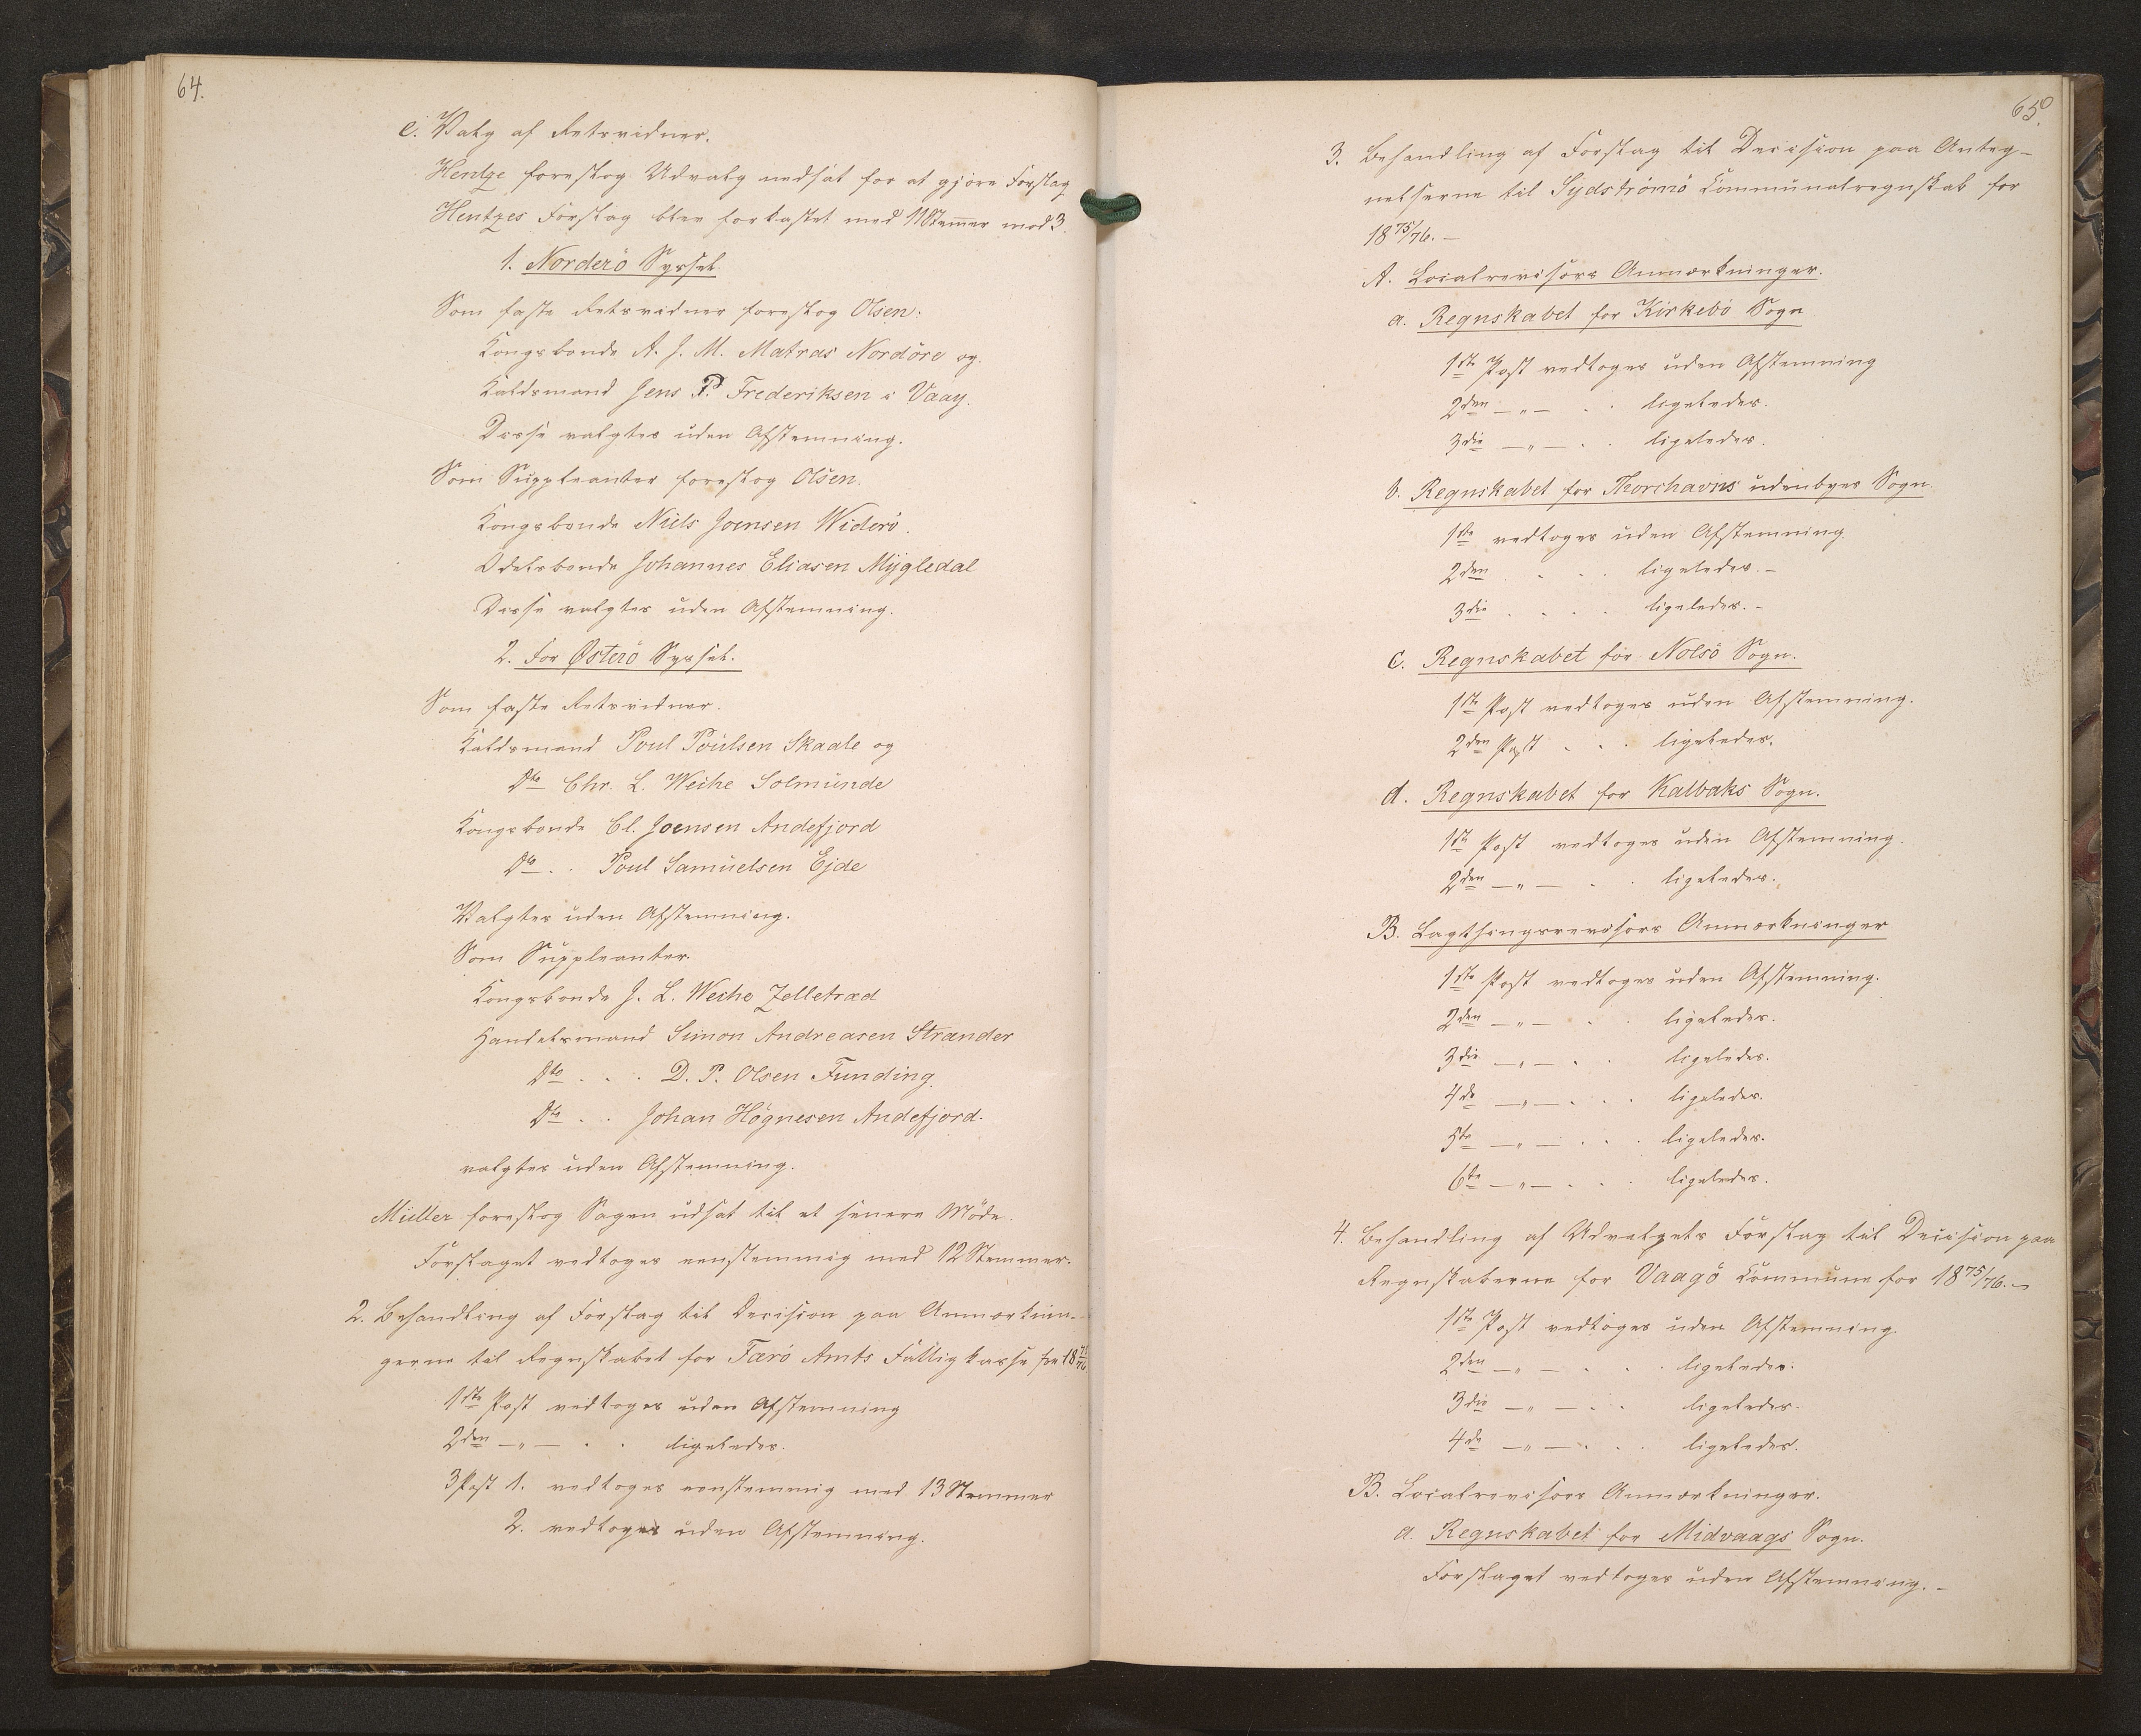 64.
e. Valg af Retsvidner.
Hentze foreslog Udvalg nedsat for at gjøre Forslag
Hentzes Forslag blev forkastet med 11 Stemmer mod 3.
1. Norderö Syssel.
Som faste Retsvidner foreslog Olsen:
Kongsbonde A. J. M. Matras Nordöre og
Kaldsmand Jens P. Frederiksen i Vaag.
Disse valgtes uden Afstemning.
Som Suppleanter foreslog Olsen.
Kongsbonde Niels Joensen Widerö.
Odelsbonde Johannes Eliasen Mygledal
Disse valgtes uden Afstemning.
2. For Østerö Syssel.
Som faste Retsvidner.
Kaldsmand Poul Poulsen Skaale og
Dto Chr. L. Weihe Solmunde
Kongsbonde Cl. Joensen Andefjord
Dto . . Poul Samuelsen Ejde
Valgtes uden Afstemning.
Som Suppleanter.
Kongsbonde J. L. Weihe Zelletræd
Handelsmand Simon Andreasen Strænder
Dto . . . D. P. Olsen Funding.
Dto . . Johan Högnesen Andefjord.
valgtes uden Afstemning.
Müller foreslog Sagen udsat til et senere Möde.
Forslaget vedtoges eenstemmig med 12 Stemmer.
2. Behandling af Forslag til Decision paa Anmærknin-
gerne til Regnskabet for Færö Amts Fattigkasse for 1875/76
1ste Post vedtoges uden Afstemning
2den —„— . . ligeledes.
3 Post 1. vedtoges eenstemmig med 13 Stemmer
2. vedtoges uden Afstemning.
65.
3. Behandling af Forslag til Decision paa Anteg-
nelserne til Sydströmö Kommunalregnskab for
1875/76. —
A. Localrevisors Anmærkninger.
a. Regnskabet for Kirkebö Sogn
1ste Post vedtoges uden Afstemning
2den —„— . . ligeledes.
3die —„— . . ligeledes.
b. Regnskabet for Thorshavns udenbyes Sogn.
1ste vedtoges uden Afstemning.
2den . . . ligeledes. —
3die . . . . ligeledes. —
c. Regnskabet for Nolsö Sogn.
1ste Post vedtoges uden Afstemning.
2den Post . . . ligeledes.
d. Regnskabet for Kalbaks Sogn.
1ste Post vedtoges uden Afstemning.
2den —„— . . ligeledes.
B. Lagthingsrevisors Anmærkninger
1ste Post vedtoges uden Afstemning.
2den —„— . . ligeledes.
3die —„— . . ligeledes.
4de —„— . . . ligeledes.
5te —„— . . . ligeledes.
6te —„— . . . ligeledes.
4. Behandling af Udvalgets Forslag til Decision paa
Regnskaberne for Vaagö Kommune for 1875/76. —
1ste Post vedtoges uden Afstemning.
2den —„— . . . ligeledes.
3die —„— . . ligeledes.
4de —„— . . . ligeledes.
B. Localrevisors Anmærkninger.
a. Regnskabet for Midvaags Sogn.
Forslaget vedtoges uden Afstemning. —